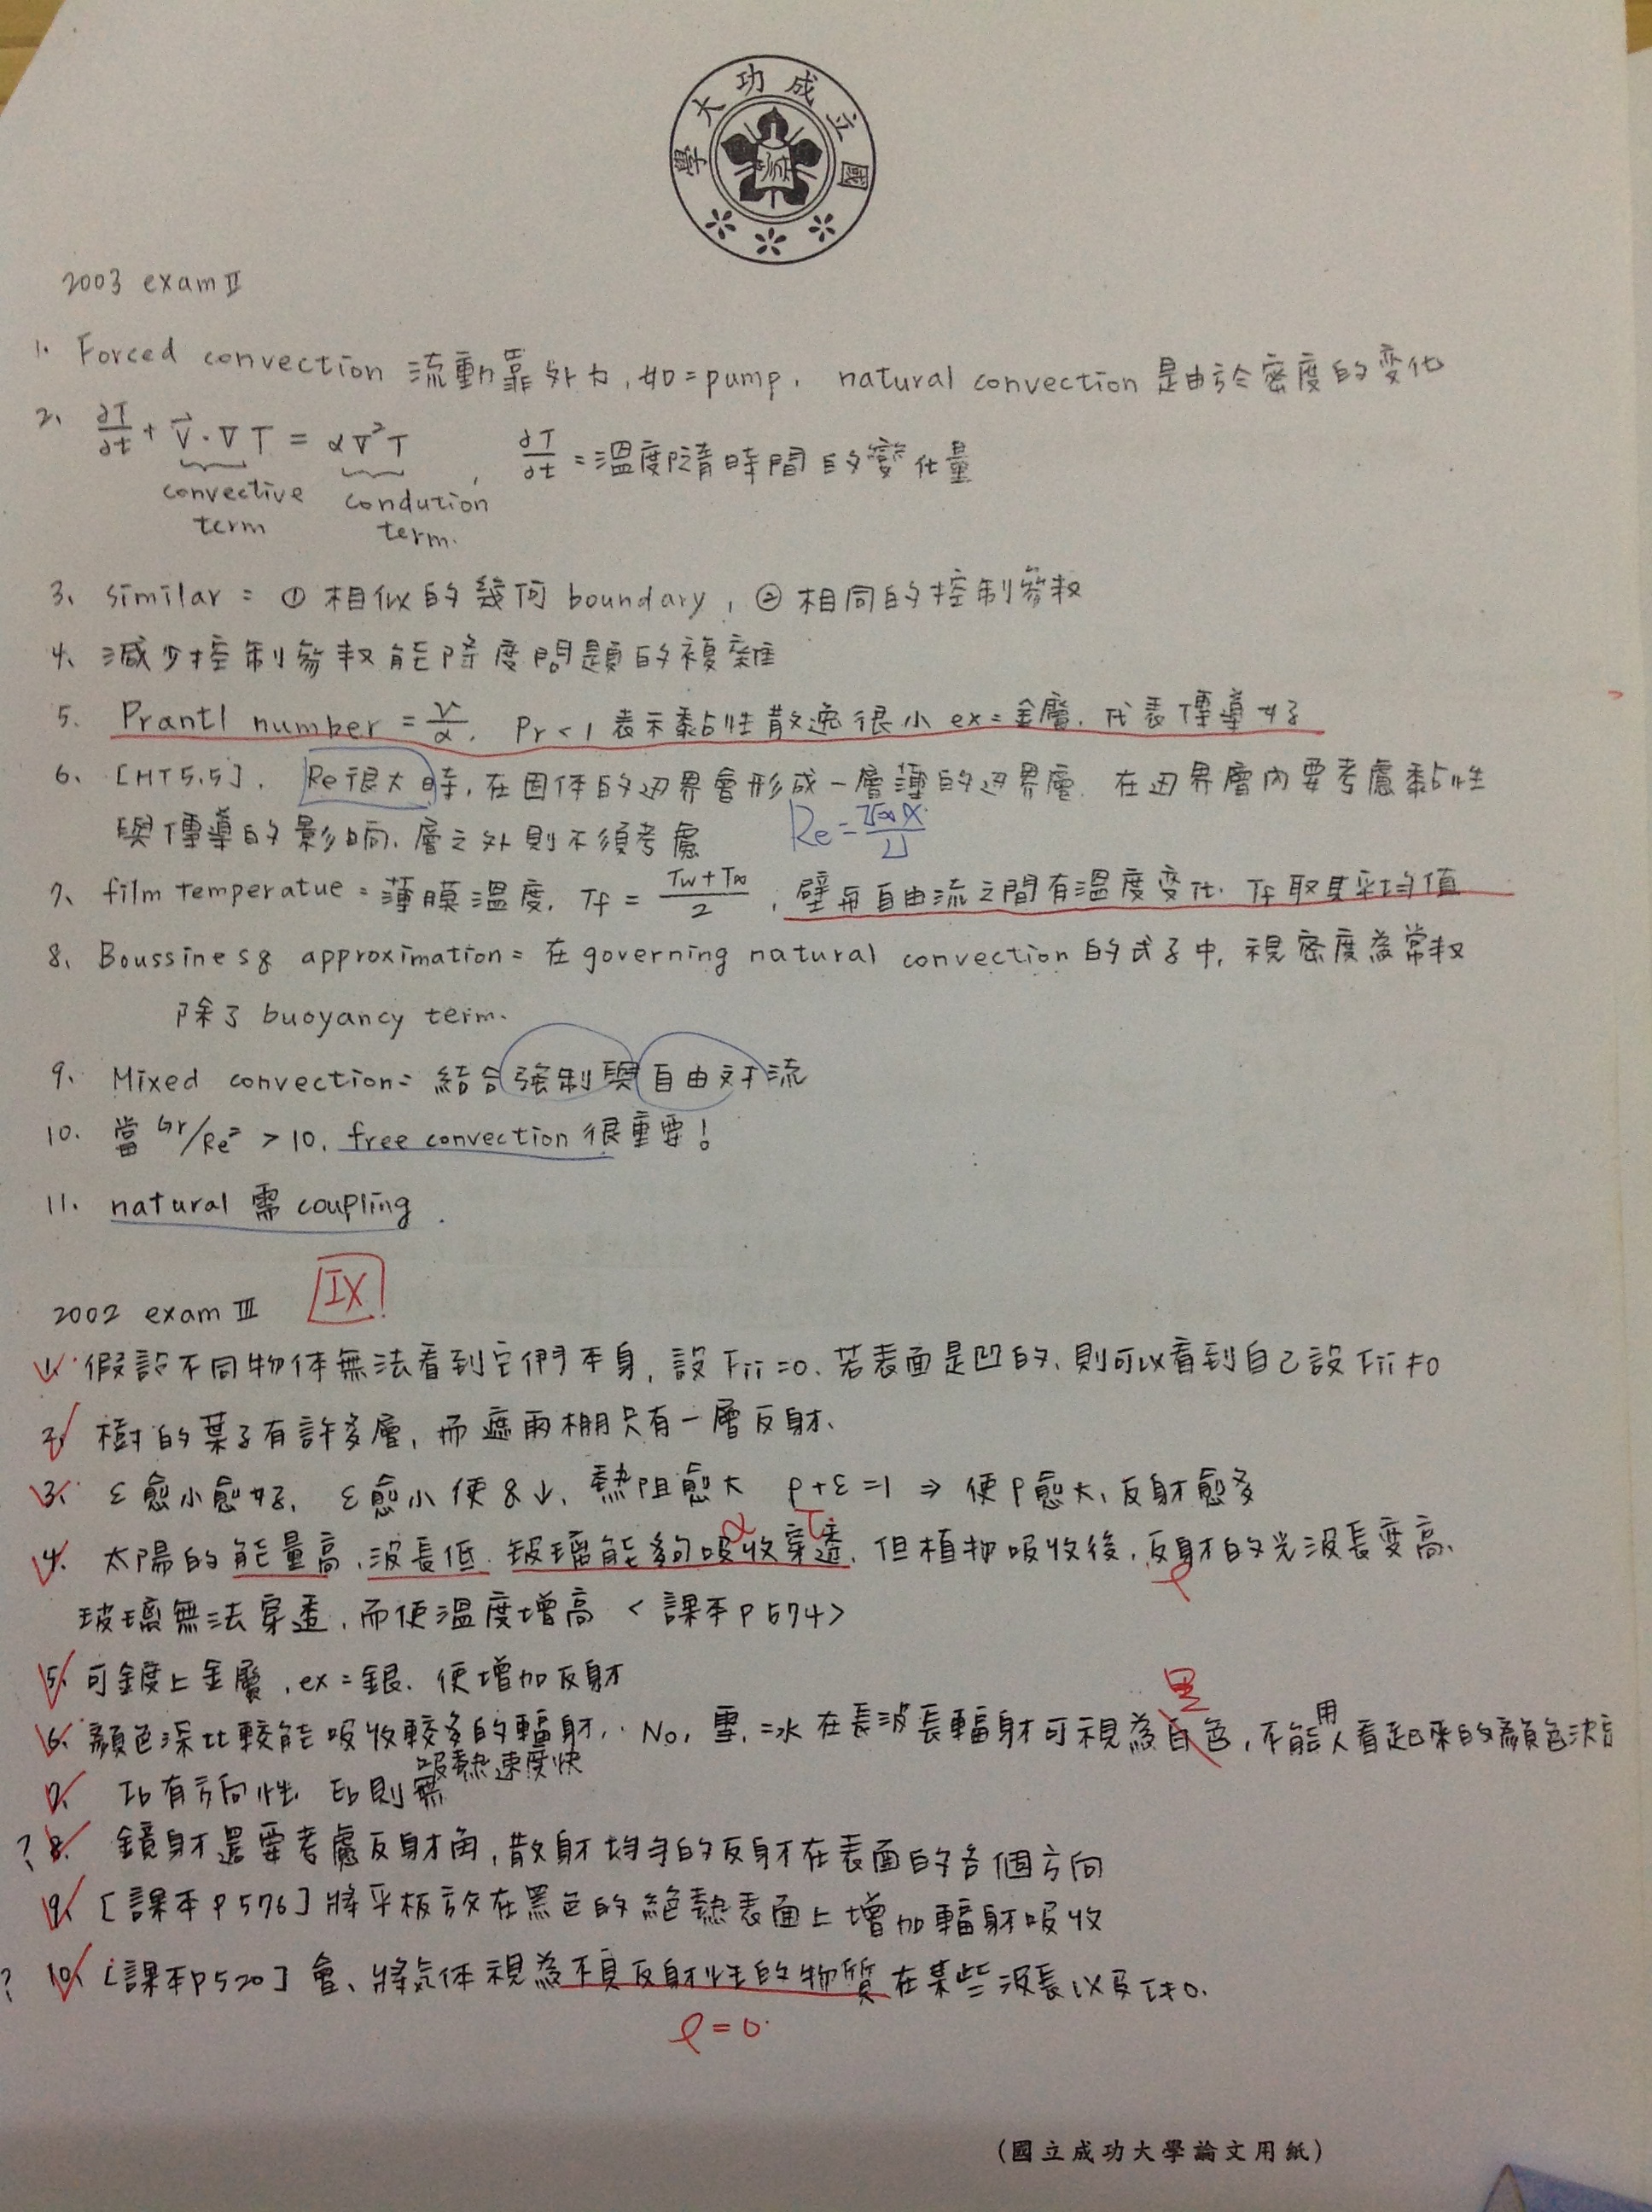 國立成功大學
2003 exam Ⅱ
1. Forced convection 流動靠外力,如=pump, natural convection 是由於密度的變化
2、 ∂T/∂t + V⃗·∇T = α∇²T , ∂T/∂t =溫度隨時間的變化量
convective term condution term.
3、 similar = ① 相似的幾何 boundary, ② 相同的控制參數
4、 減少控制參數能降度問題的複雜
5. Prantl number = ν/α. Pr<1 表示黏性散逸很小 ex=金屬, 代表傳導好
6、 [HT5.5]. Re很大時,在固体的边界會形成一層薄的边界層. 在边界層內要考慮黏性
與傳導的影响, 層之外則不須考慮 Re = U∞X/ν
7、 film temperatue = 薄膜溫度, Tf = (Tw+T∞)/2 , 壁與自由流之間有溫度變化. Tf 取其平均值
8、 Boussinesq approximation= 在 governing natural convection 的式子中, 視密度為常數
除了 buoyancy term.
9、 Mixed convection= 結合強制與自由對流
10. 當 Gr/Re² > 10, free convection 很重要!
11. natural 需 coupling.
2002 exam Ⅲ IX
1. 假設不同物体無法看到它們本身, 設 Fii=0. 若表面是凹的, 則可以看到自己設 Fii≠0
2. 樹的葉子有許多層, 而遮雨棚只有一層反射、
3、 ε愈小愈好, ε愈小使q↓, 熱阻愈大 ρ+ε=1 ⇒ 使ρ愈大、反射愈多
α τ
4. 太陽的能量高, 波長低. 玻璃能夠吸收穿透, 但植物吸收後, 反射的光波長變高、
ρ
玻璃無法穿透, 而使溫度增高 <課本P574>
5. 可鍍上金屬, ex=銀. 使增加反射
黑
6. 顏色深比較能吸收較多的輻射, No, 雪,=水 在長波長輻射可視為白色, 不能用人看起來的顏色決定
吸熱速度快
7. Ib有方向性 Eb則無
? 8. 鏡射還要考慮反射角, 散射均勻的反射在表面的各個方向
9. [課本P576] 將平板放在黑色的絕熱表面上增加輻射吸收
? 10、 [課本P520] 會、將気体視為不具反射性的物質在某些波長以及τ≠0.
ρ=0.
(國立成功大學論文用紙)